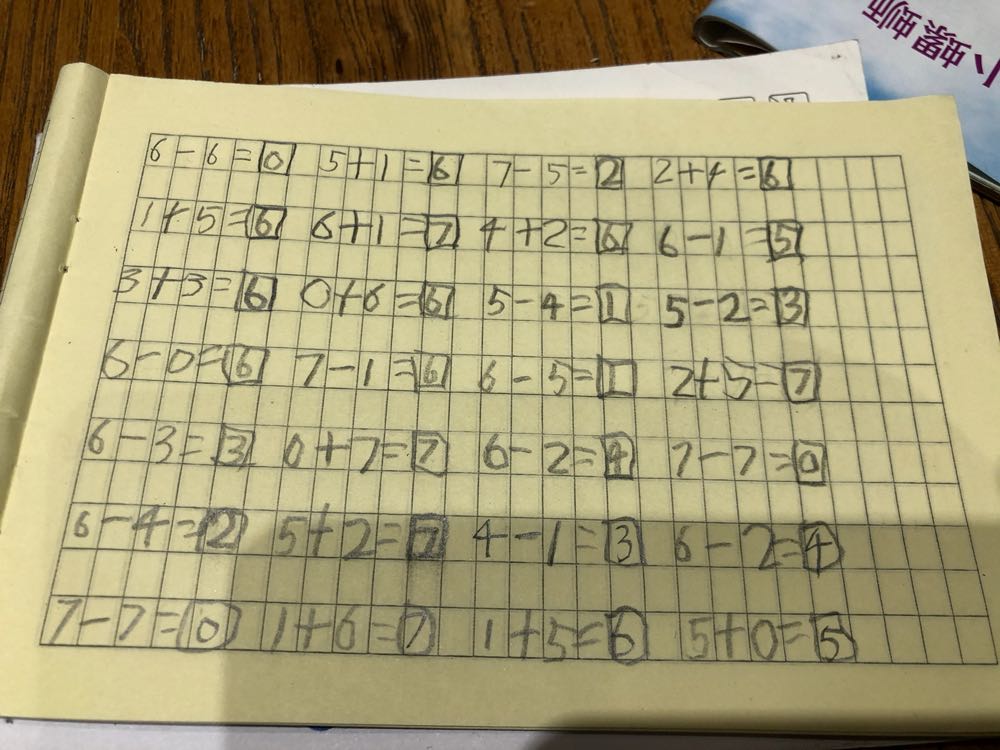 小螺蛳
6-6=0 5+1=6 7-5=2 2+4=6
1+5=6 6+1=7 4+2=6 6-1=5
3+3=6 0+6=6 5-4=1 5-2=3
6-0=6 7-1=6 6-5=1 2+5=7
6-3=3 0+7=7 6-2=4 7-7=0
6-4=2 5+2=7 4-1=3 6-2=4
7-7=0 1+6=7 1+5=6 5+0=5